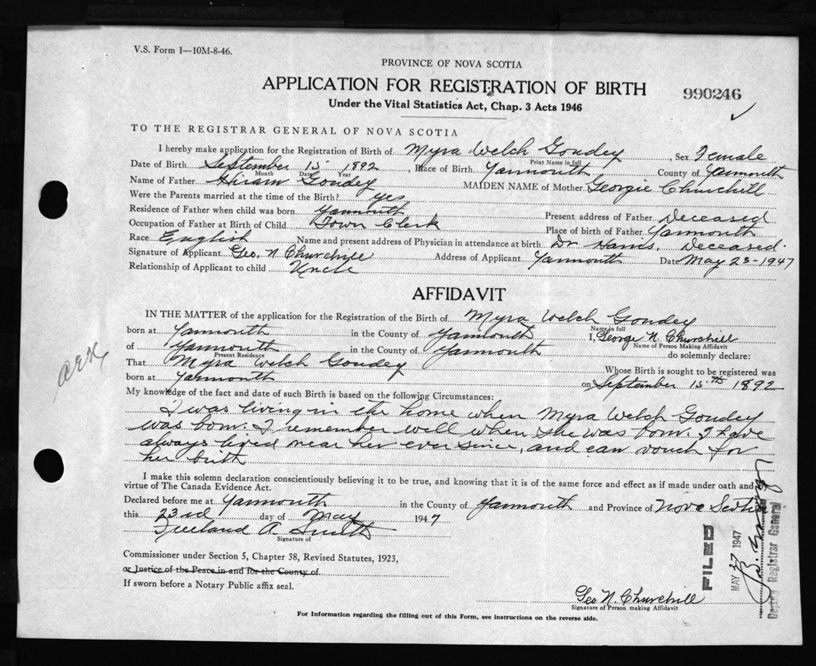 V.S. Form 1—10M-8-46.
PROVINCE OF NOVA SCOTIA
APPLICATION FOR REGISTRATION OF BIRTH
990246
Under the Vital Statistics Act, Chap. 3 Acts 1946
TO THE REGISTRAR GENERAL OF NOVA SCOTIA
I hereby make application for the Registration of Birth of Myra Welch Goudey, Sex Female
Print Name in full
Date of Birth September 15 1892, Place of Birth Yarmouth County of Yarmouth
Month Date Year
Name of Father Hiram Goudey MAIDEN NAME of Mother Georgie Churchill
Were the Parents married at the time of the Birth? yes
Residence of Father when child was born Yarmouth Present address of Father Deceased
Occupation of Father at Birth of Child Town Clerk Place of birth of Father Yarmouth
Race English Name and present address of Physician in attendance at birth Dr Harris, Deceased.
Signature of Applicant Geo. N Churchill Address of Applicant Yarmouth Date May 23-1947
Relationship of Applicant to child Uncle
AFFIDAVIT
IN THE MATTER of the application for the Registration of the Birth of Myra Welch Goudey
Name in full
born at Yarmouth in the County of Yarmouth I, George N. Churchill
Name of Person Making Affidavit
of Yarmouth in the County of Yarmouth do solemnly declare:
Present Residence
That Myra Welch Goudey Whose Birth is sought to be registered was
born at Yarmouth on September 15th 1892
My knowledge of the fact and date of such Birth is based on the following Circumstances:
I was living in the home when Myra Welch Goudey
was born. I remember well when she was born. I have
always lived near her ever since, and can vouch for
her birth
I make this solemn declaration conscientiously believing it to be true, and knowing that it is of the same force and effect as if made under oath and by
virtue of The Canada Evidence Act.
Declared before me at Yarmouth in the County of Yarmouth and Province of Nova Scotia
this 23rd day of May 1947
Freeland A. Smith
Signature of
Commissioner under Section 5, Chapter 38, Revised Statutes, 1923,
or Justice of the Peace in and for the County of
If sworn before a Notary Public affix seal.
Geo. N. Churchill
Signature of Person making Affidavit
For Information regarding the filling out of this Form, see instructions on the reverse side.
FILED
MAY 27 1947
Deputy Registrar General